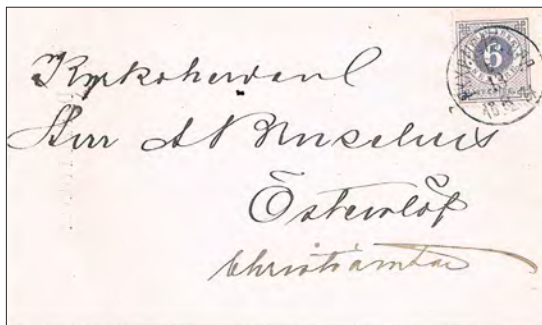 Kyrkoherden
Herr A N Bruzelius
Österslöf
Christianstad
5